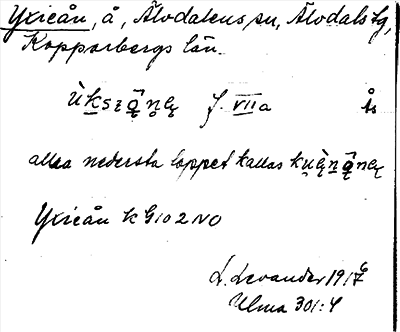 Yxieån, å, Älvdalens sn, Älvdals tg,
Kopparbergs län.
f. VIIa
allra nedersta loppet kallas
Yxieån k G10 2 NO
L. Levander 1917
Ulma 301:4